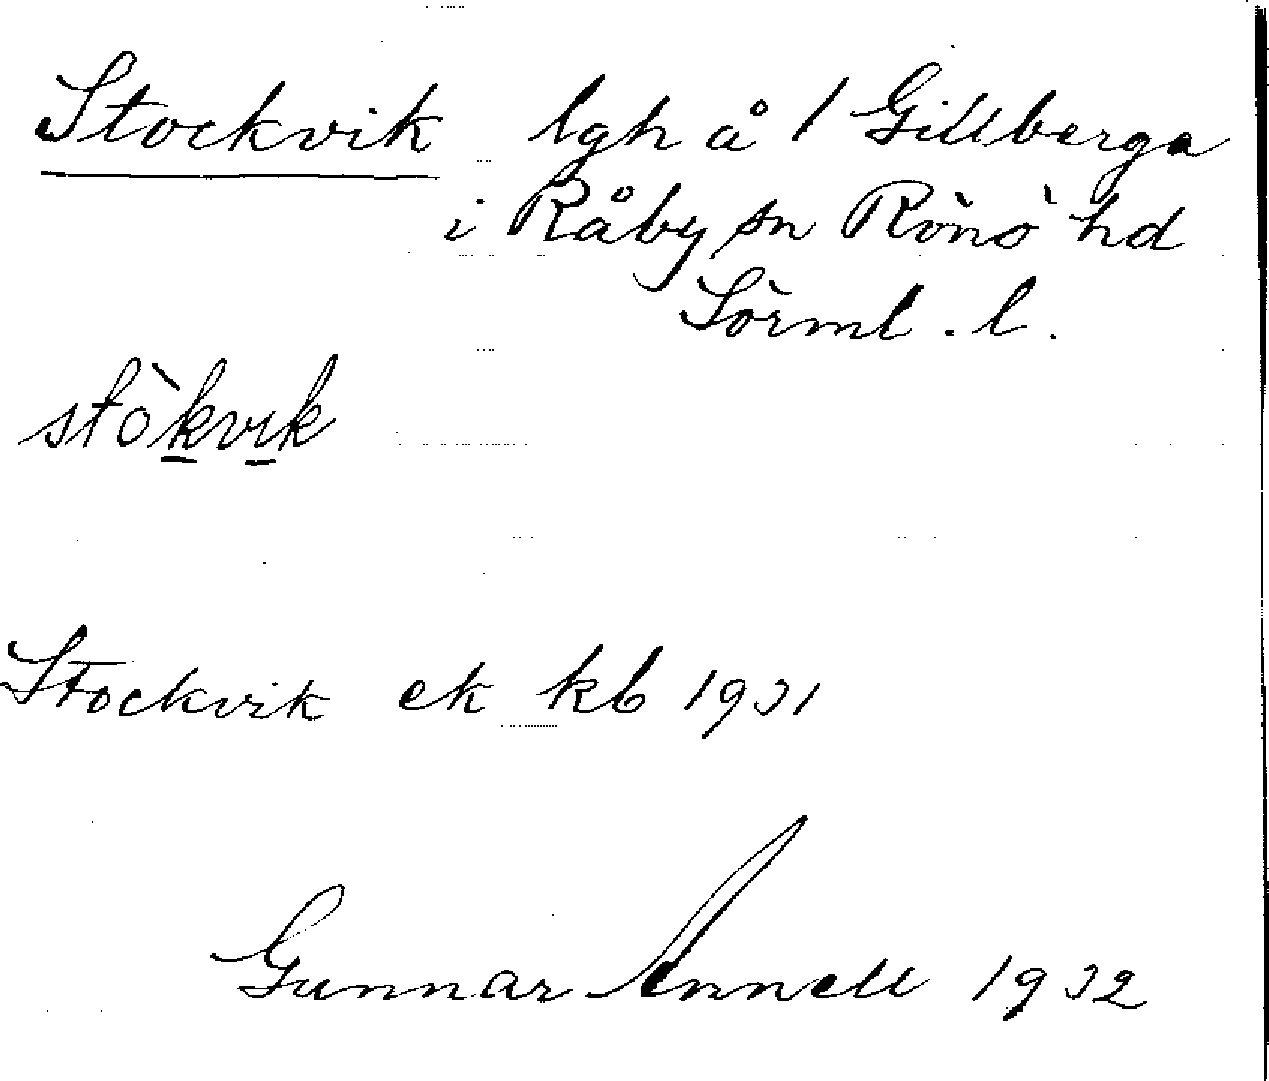 Stockvik lgh å 1 Gillberga
i Råby sn Rönö hd
Sörml. l.
stòkvik
Stockvik ek kb 1931
Gunnar Annell 1932